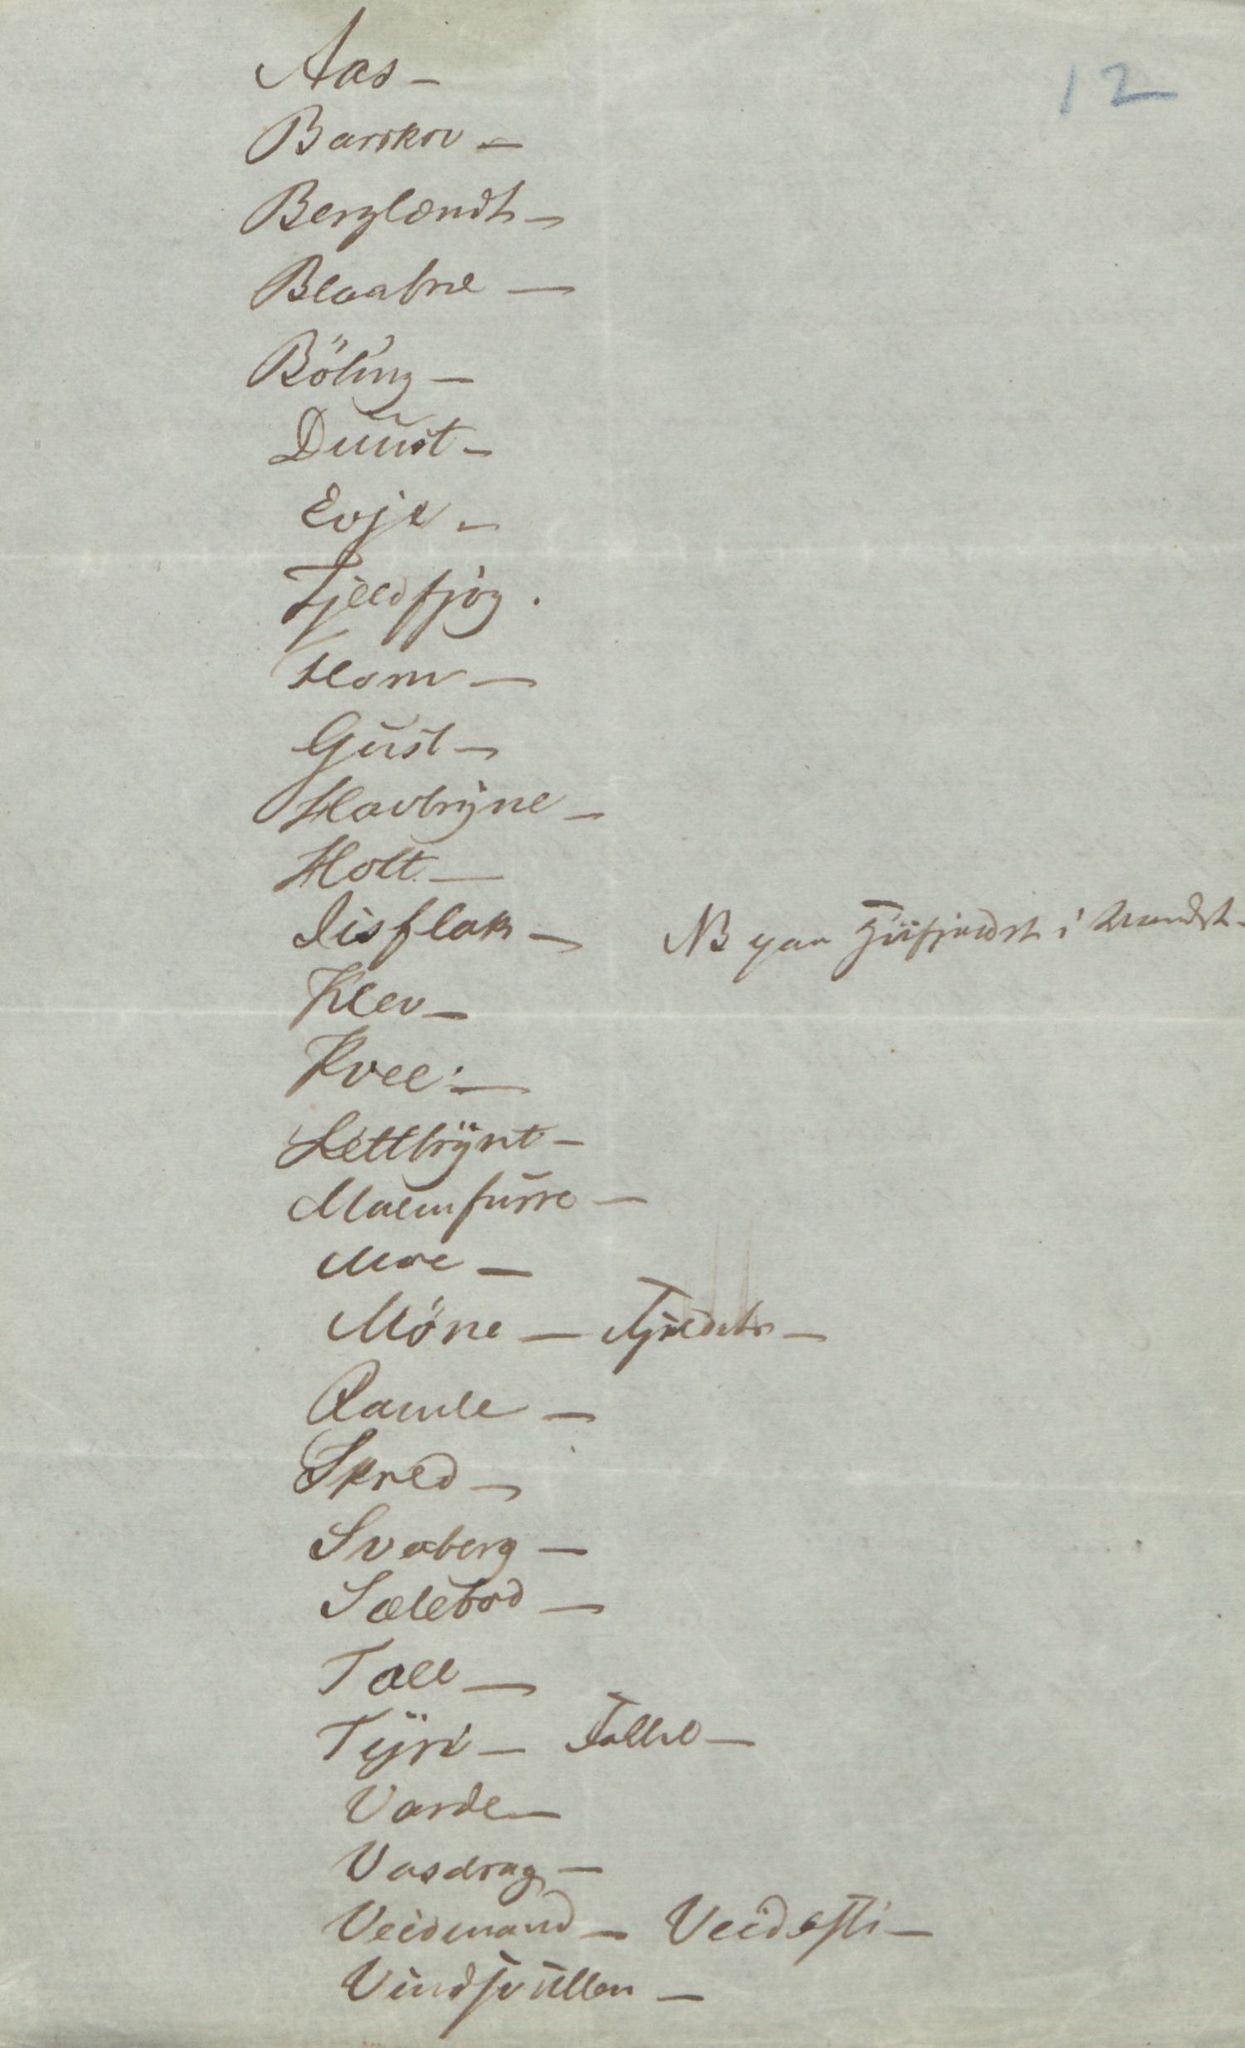 Aas —
12
Barskov —
Berglændt —
Blaatne —
Böling —
Duust —
Evje —
Fjeldfjög .
Hom —
Gust —
Havbryne —
Holt —
Iisflak —
NB paa i
Klev —
Kvel —
Lettbrynt —
Malmfurre —
Moe —
Möne —
Ramle —
Skred —
Svaberg —
Sælebod —
Tall —
Tyri —
Varde —
Vasdrag —
Veidmand — Veidesti —
Vindsvullen —